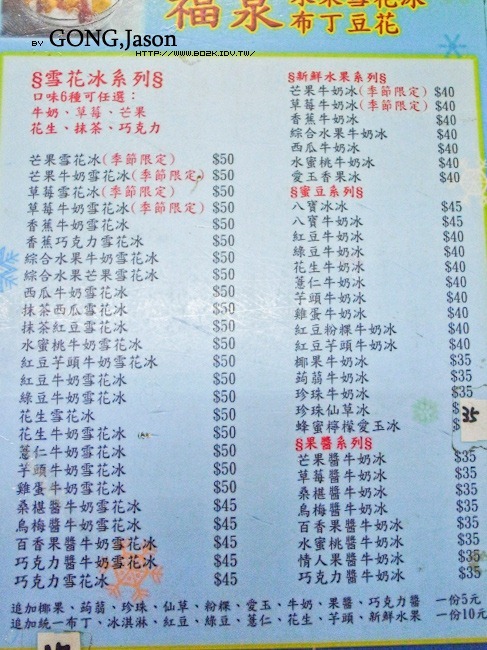 福泉 水果雪花冰
布丁豆花
BY GONG,Jason
HTTP://WWW.BOZK.IDV.TW/
§雪花冰系列§
口味6種可任選：
牛奶、草莓、芒果
花生、抹茶、巧克力
芒果雪花冰(季節限定) $50
芒果牛奶雪花冰(季節限定) $50
草莓雪花冰(季節限定) $50
草莓牛奶雪花冰(季節限定) $50
香蕉牛奶雪花冰 $50
香蕉巧克力雪花冰 $50
綜合水果牛奶雪花冰 $50
綜合水果芒果雪花冰 $50
西瓜牛奶雪花冰 $50
抹茶西瓜雪花冰 $50
抹茶紅豆雪花冰 $50
水蜜桃牛奶雪花冰 $50
紅豆芋頭牛奶雪花冰 $50
紅豆牛奶雪花冰 $50
綠豆牛奶雪花冰 $50
花生雪花冰 $50
花生牛奶雪花冰 $50
薏仁牛奶雪花冰 $50
芋頭牛奶雪花冰 $50
雞蛋牛奶雪花冰 $50
桑椹醬牛奶雪花冰 $45
烏梅醬牛奶雪花冰 $45
百香果醬牛奶雪花冰 $45
巧克力醬牛奶雪花冰 $45
巧克力雪花冰 $45
§新鮮水果系列§
芒果牛奶冰(季節限定) $40
草莓牛奶冰(季節限定) $40
香蕉牛奶冰 $40
綜合水果牛奶冰 $40
西瓜牛奶冰 $40
水蜜桃牛奶冰 $40
愛玉香果冰 $40
§蜜豆系列§
八寶冰冰 $45
八寶牛奶冰 $45
紅豆牛奶冰 $40
綠豆牛奶冰 $40
花生牛奶冰 $40
薏仁牛奶冰 $40
芋頭牛奶冰 $40
雞蛋牛奶冰 $40
紅豆粉粿牛奶冰 $40
紅豆芋頭牛奶冰 $40
椰果牛奶冰 $35
蒟蒻牛奶冰 $35
珍珠牛奶冰 $35
珍珠仙草冰 $
蜂蜜檸檬愛玉冰 $ 35
§果醬系列§
芒果醬牛奶冰 $35
草莓醬牛奶冰 $35
桑椹醬牛奶冰 $35
烏梅醬牛奶冰 $35
百香果醬牛奶冰 $35
水蜜桃醬牛奶冰 $35
情人果醬牛奶冰 $35
巧克力醬牛奶冰 $35
追加椰果、蒟蒻、珍珠、仙草、粉粿、愛玉、牛奶、果醬、巧克力醬 一份5元
追加統一布丁、冰淇淋、紅豆、綠豆、薏仁、花生、芋頭、新鮮水果 一份10元